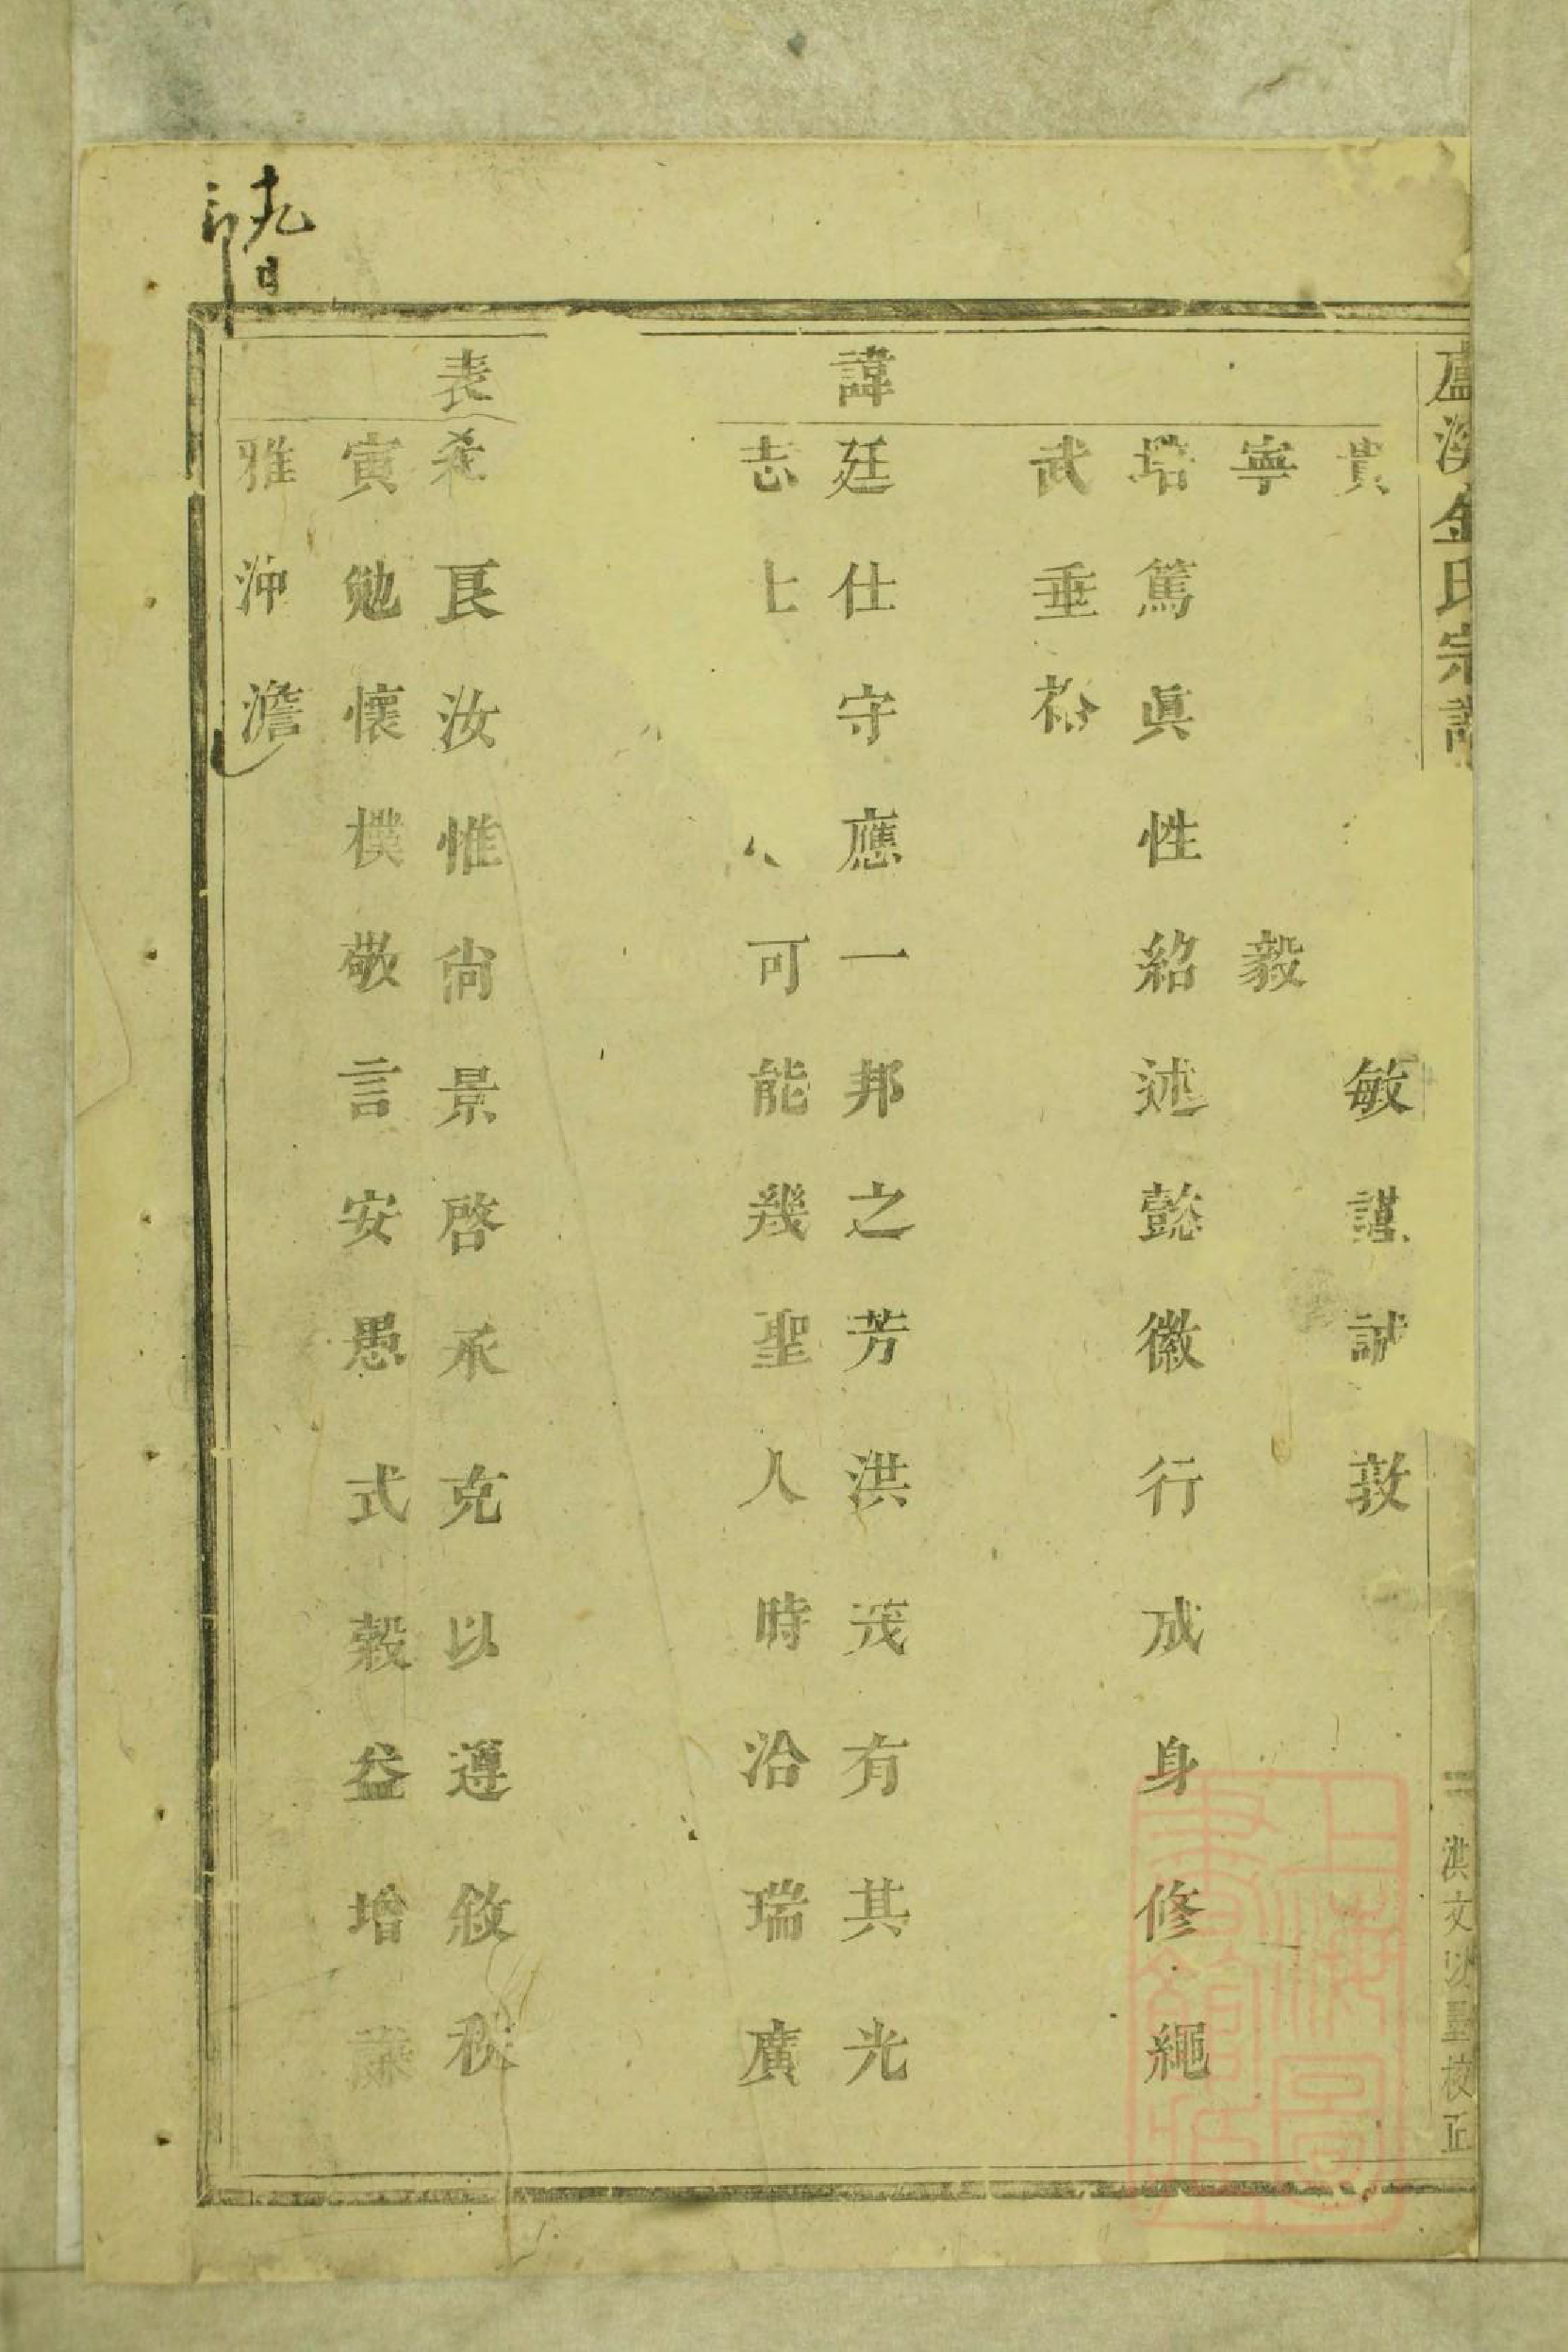 盧溪金氏宗譜
一 洪文以墨校正
貴 敏謹誠敦
寧 毅
培篤眞性紹述懿徽行成身修繩
武垂裕
諱
廷仕守應一邦之芳洪茂有其光
志 可能幾聖人時洽瑞廣
表
希良汝惟尙景啓承克以遵敘秩
寅勉懷樸敬言安愚式穀益增
雅沖澹
十九
上海圖書館藏